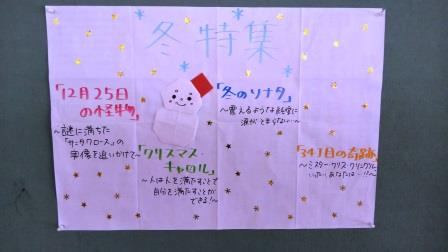 冬特集
「12月25日
の怪物」
～謎に満ちた
「サンタクロース」の
実像を追いかけて～
「クリスマス・
キャロル」
～人は人を満たすことで
自分を満たすことが
できる！～
「冬のソナタ」
～震えるような純愛に
涙がとまらない…～
「34丁目の奇跡」
～ミスター・クリス・クリングル
いったいあなたは…!!～